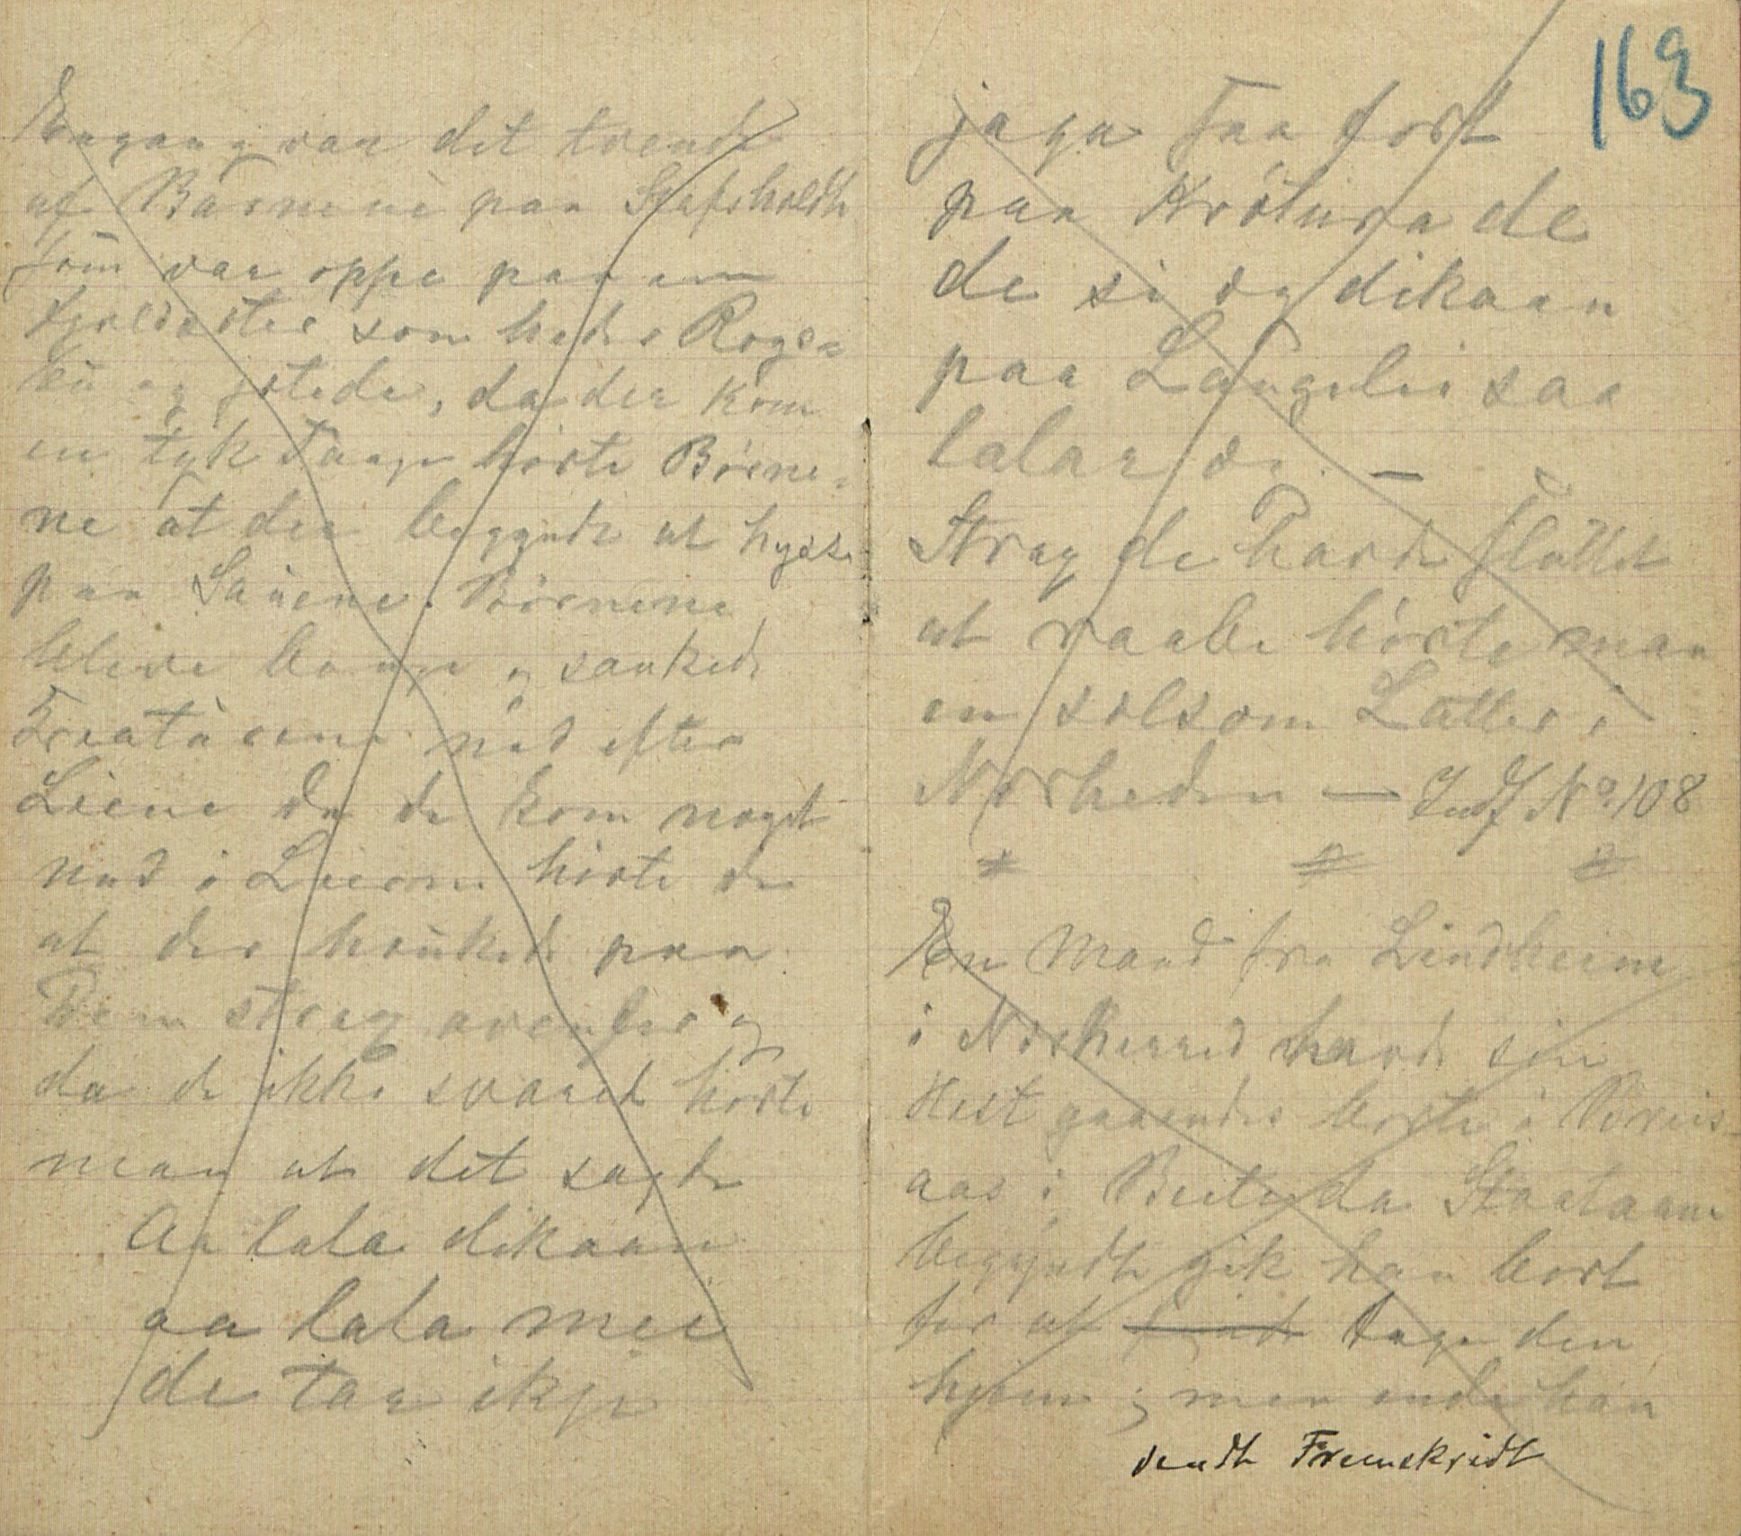 Engang var det tvende
af Børnene paa Stafsholdt
som var oppe paa en
som heder Roge=
og gjetede, da der kom
en tyk Taage hørte Børne=
ne at der begyndte at hysse
paa Sauene. Børnene
bleve bange og sankede
Kreatürene ned efter
Liene da de kom noget
ned i Lierne hørte de
at der houkede paa
Dem strax ovenfor og
da de ikke svarede hørte
man at det sagde
Aa lala dikaan
aa lala mei
de taa ikje
163
jaga Faa fort
paa Krøtura de
de si og dikaan
paa Langelie saa
lalar og. —
Strax de havde sluttet
at raabe hørte man
en sælsom Latter i
Nærheden — Indf No 108
En Mand fra Lindheim
i Nesherred havde sin
Hest gaaendes borte i
aas i da Slaataan
begyndte gik han bort
for at tage den
hjem; men enda han
vendte Fremskridt